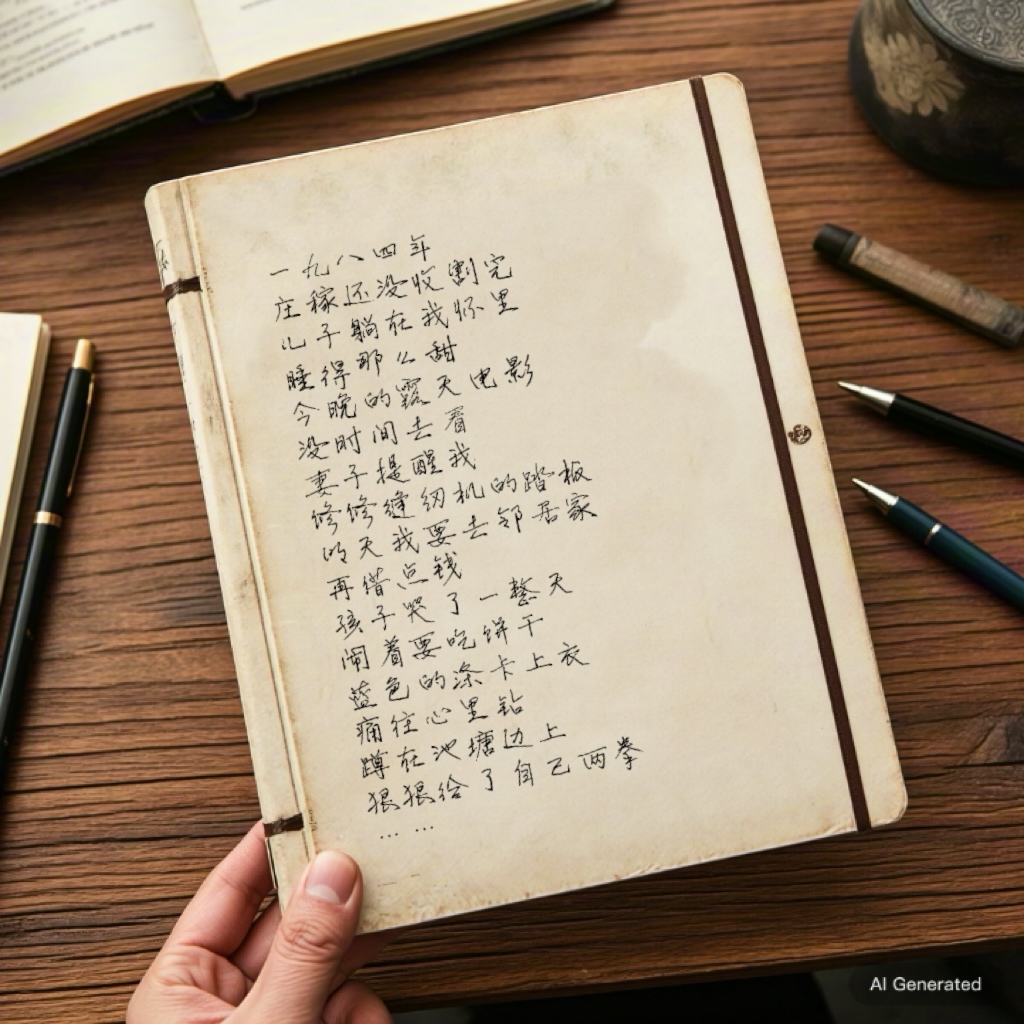 一九八四年
庄稼还没收割完
儿子躺在我怀里
睡得那么甜
今晚的露天电影
没时间去看
妻子提醒我
修修缝纫机的踏板
明天我要去邻居家
再借点钱
孩子哭了一整天
闹着要吃饼干
蓝色的涤卡上衣
痛往心里钻
蹲在池塘边上
狠狠给了自己两拳
... ...
AI Generated